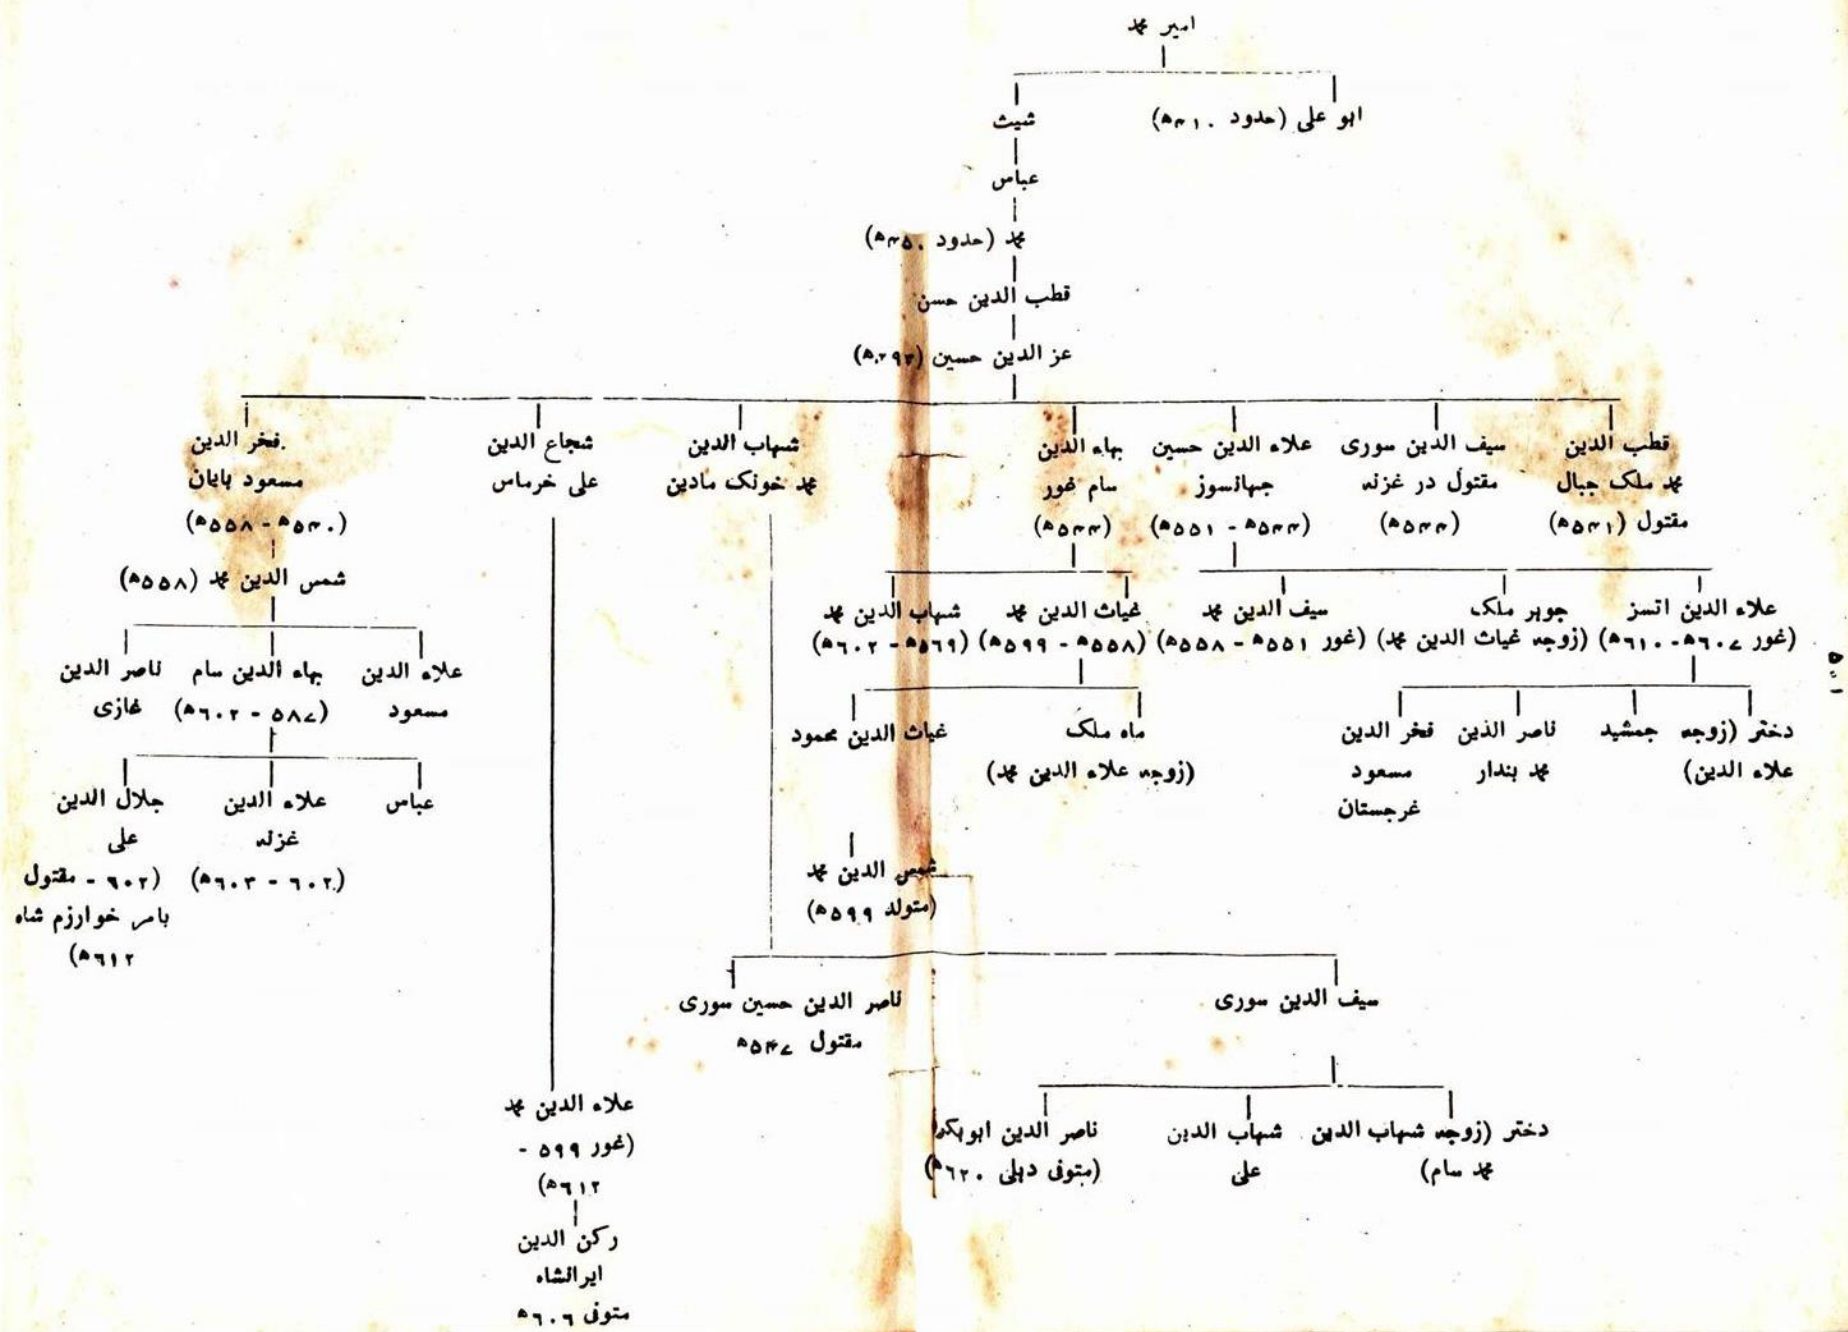 امیر محمد
ابو علی (حدود ۴۱۰ه)
شیث
عباس
محمد (حدود ۴۵۰ه)
قطب الدین حسن
عز الدین حسین
قطب الدین
محمد ملک جبال
مقتول (۵۴۱ه)
سیف الدین سوری
مقتول در غزنه
(۵۴۴ه)
علاء الدین حسین
جهانسوز
(۵۴۴ه - ۵۵۱ه)
بهاء الدین
سام غور
(۵۴۴ه)
شهاب الدین
محمد خونک مادین
شجاع الدین
علی خرماس
فخر الدین
مسعود بایان
(۵۴۰ه - ۵۵۸ه)
علاء الدین اتسز
(غور ۶۰۷ه - ۶۱۰ه)
جوہر ملک
(زوجہ غیاث الدین محمد)
سیف الدین محمد
(غور ۵۵۱ - ۵۵۸ه)
غیاث الدین محمد
(۵۵۸ه - ۵۹۹ه)
شهاب الدین محمد
(۵۶۹ه - ۶۰۲ه)
شمس الدین محمد (۵۵۸ه)
علاء الدین
مسعود
بهاء الدین سام
(۵۸۷ - ۶۰۲ه)
ناصر الدین
غازی
دختر (زوجہ
علاء الدین)
جمشید
ناصر الدین
محمد بندار
فخر الدین
مسعود
غرجستان
ماه ملک
(زوجہ علاء الدین محمد)
غیاث الدین محمود
شمس الدین محمد
(متولد ۵۹۹ه)
عباس
علاء الدین
غزنہ
(۶۰۲ - ۶۰۳ه)
جلال الدین
علی
(۶۰۲ - مقتول
بامر خوارزم شاه
۶۱۲ه)
سیف الدین سوری
ناصر الدین حسین سوری
مقتول ۵۴۷ه
دختر (زوجہ شهاب الدین
محمد سام)
شهاب الدین
علی
ناصر الدین ابوبکر
(متوفی دہلی ۶۲۰ه)
علاء الدین محمد
(غور ۵۹۹ -
۶۱۲ه)
رکن الدین
ایرانشاه
متوفی ۶۰۶ه